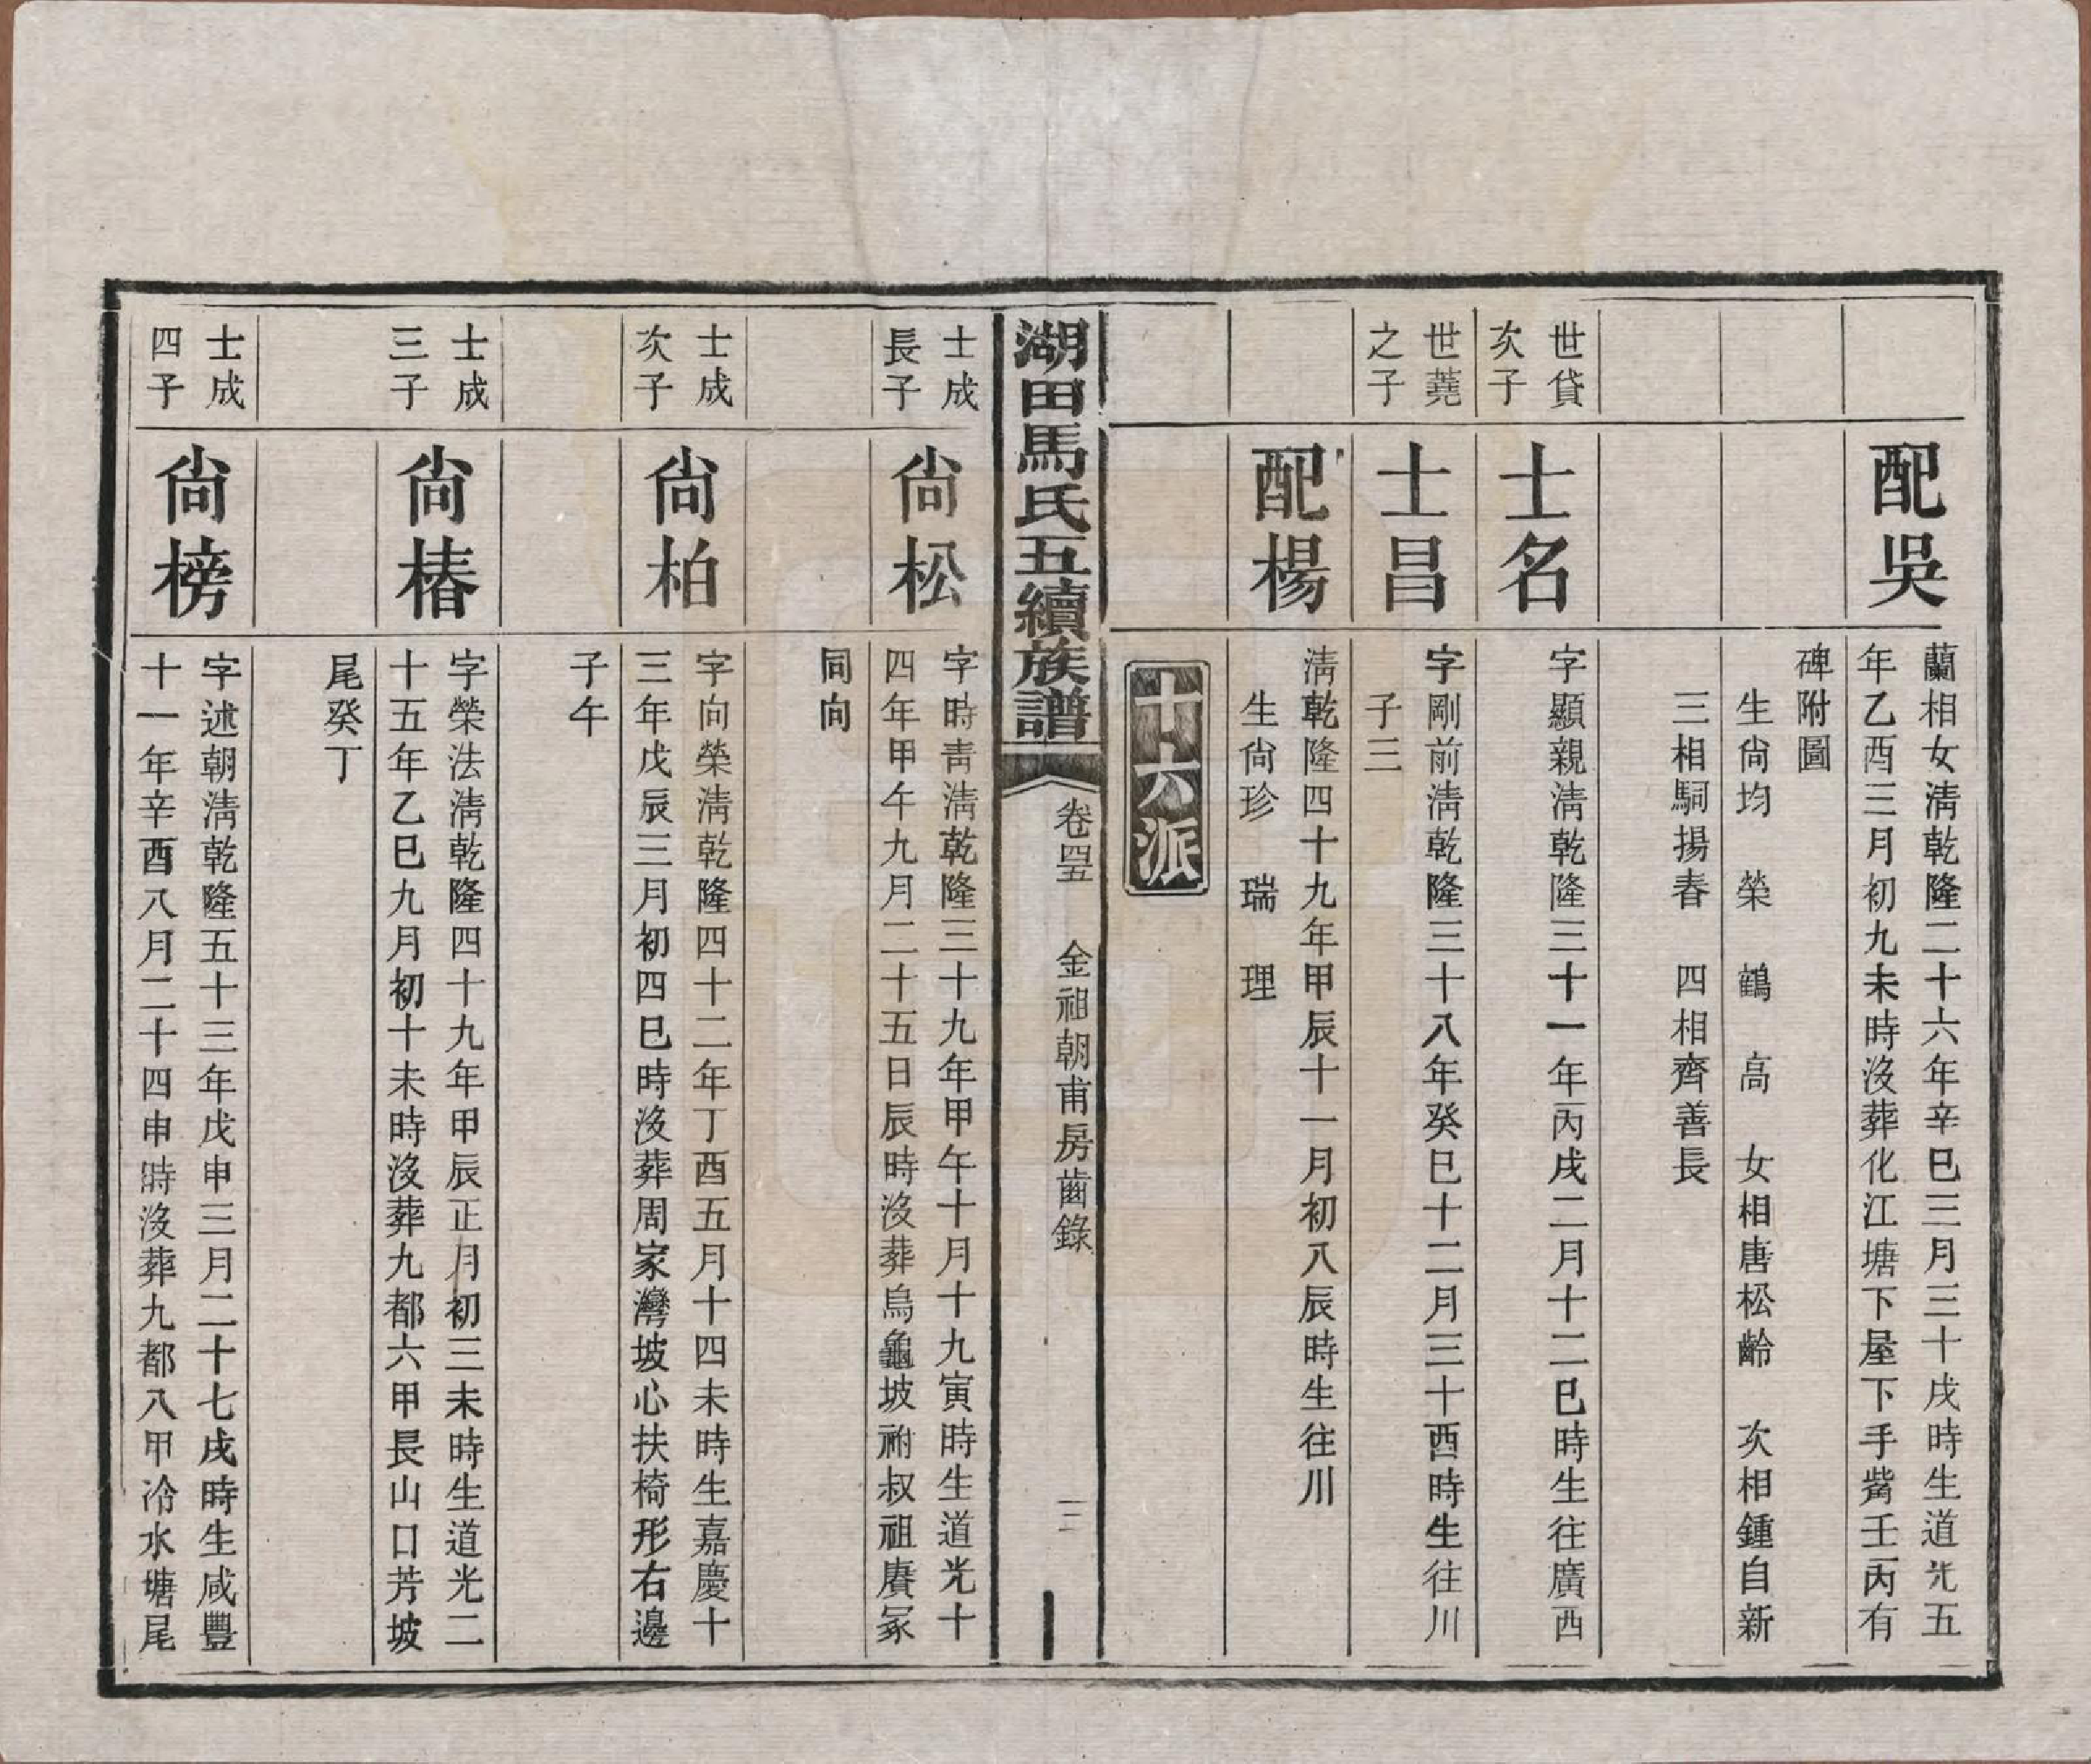 配吳
蘭相女淸乾隆二十六年辛巳三月三十戌時生道光五
年乙酉三月初九未時沒葬化江塘下屋下手觜壬丙有
碑附圖
生尙均　榮　鶴　高　女相唐松齡　次相鍾自新
三相駉揚春　四相齊善長
世貸
次子
士名
字顯親淸乾隆三十一年丙戌二月十二巳時生往廣西
世蕘
之子
士昌
字剛前淸乾隆三十八年癸巳十二月三十酉時生往川
子三
配楊
淸乾隆四十九年甲辰十一月初八辰時生往川
生尙珍　瑞　理
十六派
湖田馬氏五續族譜
卷四五　金祖朝甫房齒錄
二
士成
長子
尙松
字時靑淸乾隆三十九年甲午十月十九寅時生道光十
四年甲午九月二十五日辰時沒葬烏龜坡祔叔祖賡冢
同向
士成
次子
尙柏
字向榮淸乾隆四十二年丁酉五月十四未時生嘉慶十
三年戊辰三月初四巳時沒葬周家灣坡心扶椅形右邊
子午
士成
三子
尙椿
字榮法淸乾隆四十九年甲辰正月初三未時生道光二
十五年乙巳九月初十未時沒葬九都六甲長山口芳坡
尾癸丁
士成
四子
尙榜
字述朝淸乾隆五十三年戊申三月二十七戌時生咸豐
十一年辛酉八月二十四申時沒葬九都八甲冷水塘尾